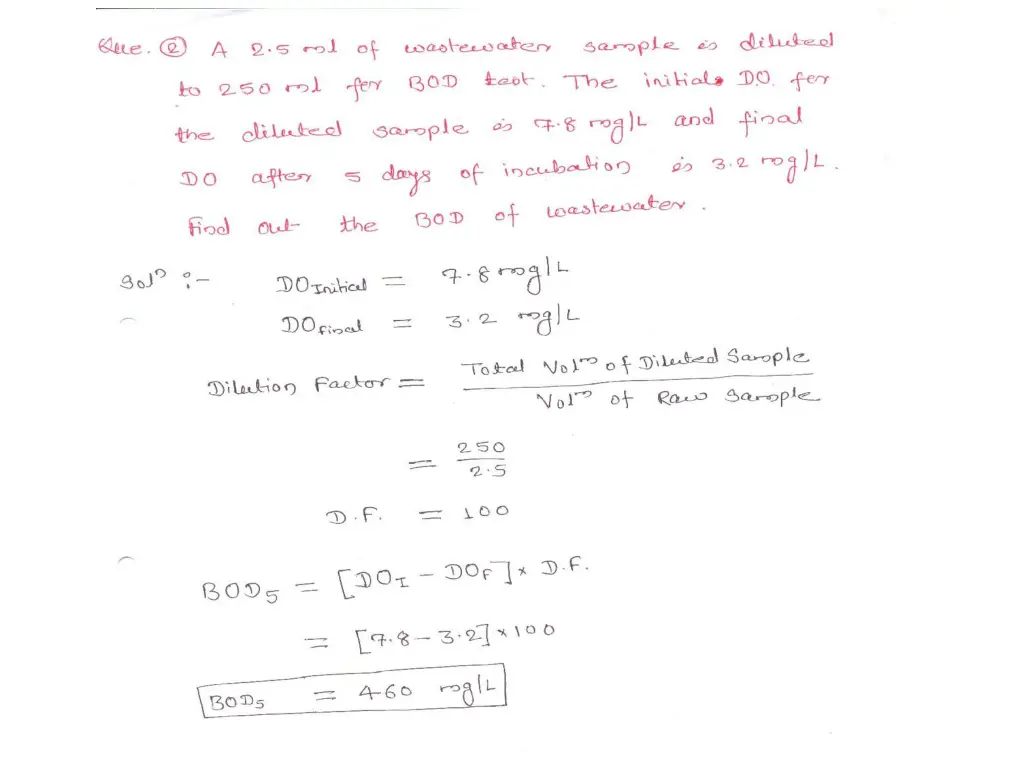 Que. ② A 2.5 ml of wastewater sample is diluted
to 250 ml for BOD test. The initial D.O. for
the diluted sample is 7.8 mg/L and final
DO after 5 days of incubation is 3.2 mg/L.
Find out the BOD of wastewater.
Solⁿ :- DO Initial = 7.8 mg/L
DO final = 3.2 mg/L
Dilution Factor = Total Volᵐ of Diluted Sample
Volᵐ of Raw Sample
= 250
2.5
D.F. = 100
BOD₅ = [DO_I - DO_F] × D.F.
= [7.8 - 3.2] × 100
BOD₅ = 460 mg/L